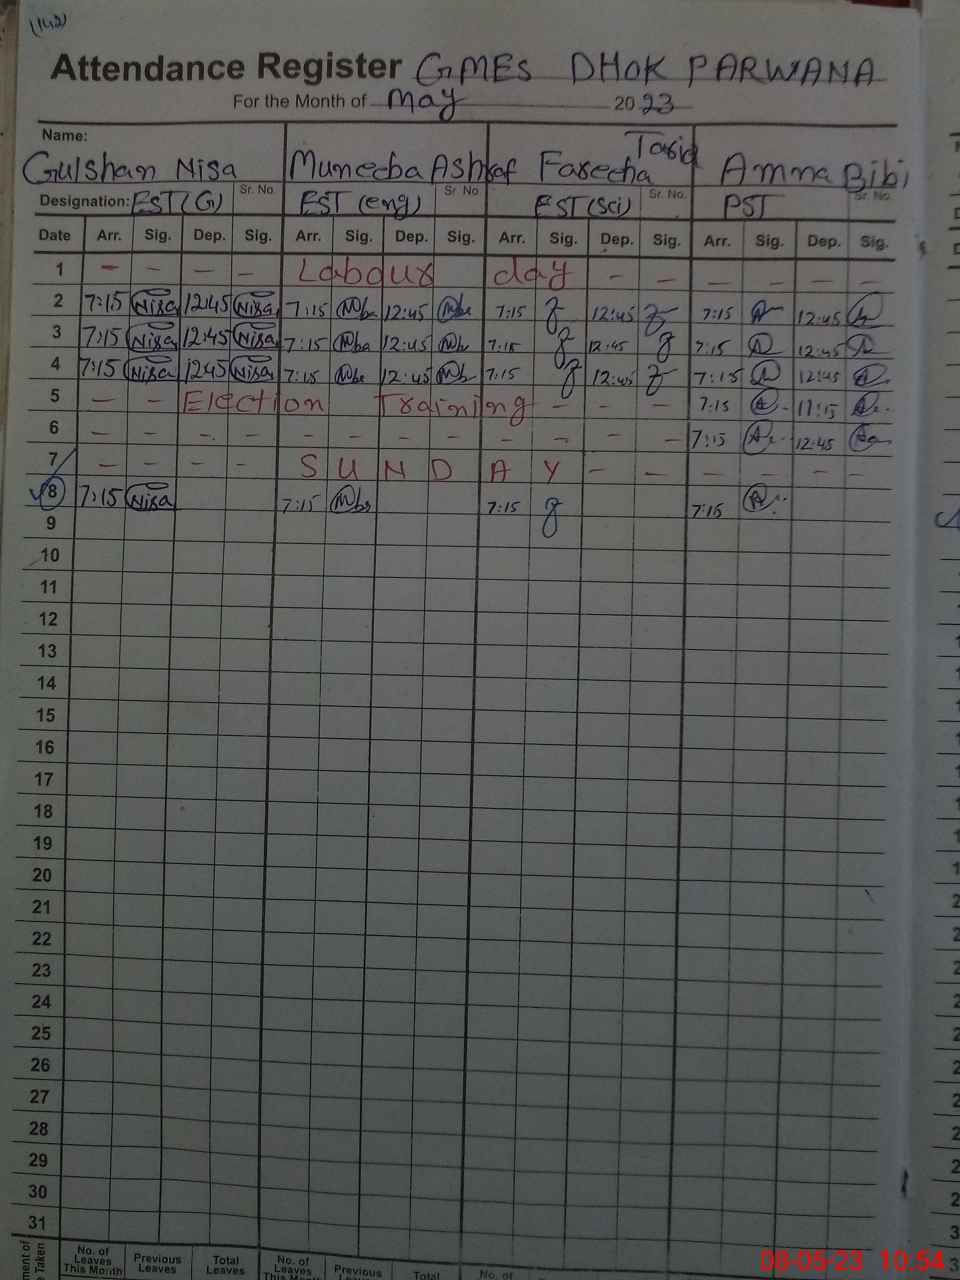 (142)
Attendance Register GMES DHOK PARWANA
For the Month of May 2023
Name:
Gulshan Nisa Muneeba Ashraf Faseeha Tariq Amna Bibi
Designation: EST (G) Sr. No. EST (eng) Sr. No EST (Sci) Sr. No. PST Sr. No.
Date Arr. Sig. Dep. Sig. Arr. Sig. Dep. Sig. Arr. Sig. Dep. Sig. Arr. Sig. Dep. Sig.
1 - - - - Labour day - - - - - -
2 7:15 Nisa 12:45 Nisa 7:15 Mba 12:45 Mba 7:15 12:45 7:15 12:45
3 7:15 Nisa 12:45 Nisa 7:15 Mba 12:45 Mb 7:15 12:45 7:15 12:45
4 7:15 Nisa 1245 Nisa 7:15 Mba 12:45 Mb 7:15 12:45 7:15 12:45
5 - - Election Training - - - 7:15 11:15
6 - - - - - - - - - - - - 7:15 12:45
7 - - - - S U N D A Y - - - - - -
8 7:15 Nisa 7:15 Mba 7:15 7:15
9
10
11
12
13
14
15
16
17
18
19
20
21
22
23
24
25
26
27
28
29
30
31
No. of Leaves This Month Previous Leaves Total Leaves No. of Leaves This Month Previous Leaves Total No. of
08-05-23 10:54